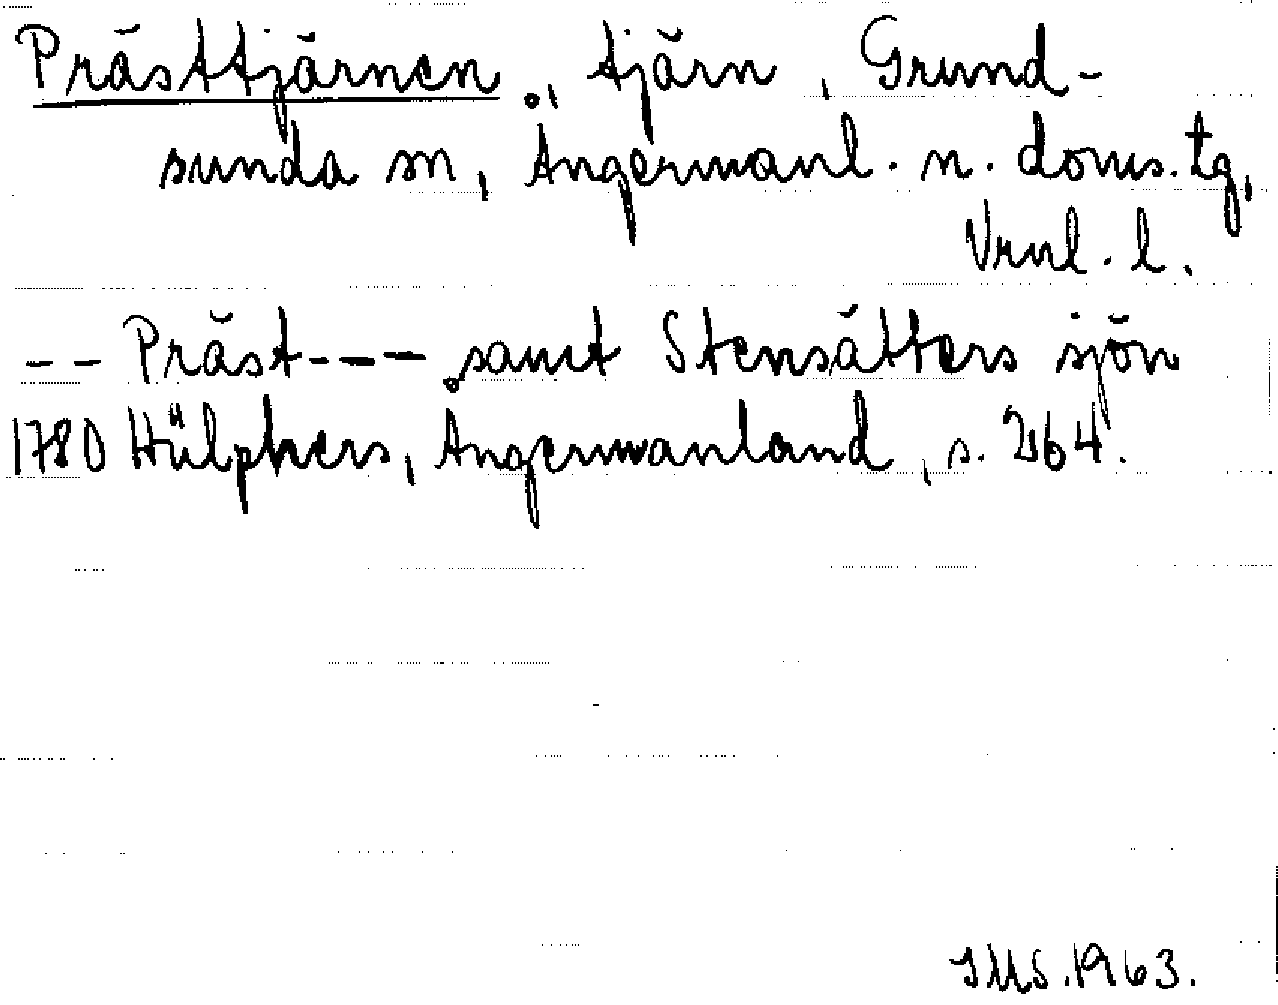 Prästtjärnen, tjärn, Grund-
sunda sn, Ångermanl. n. doms. tg,
Vrnl. l.
-- Präst--- samt Stensätters sjön
1780 Hülphers, Ångermanland, s. 264.
IMS. 1963.